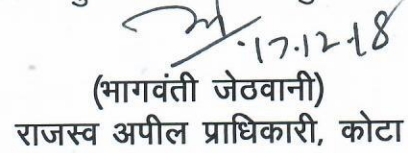 17.12.18
(भागवंती जेठवानी)
राजस्व अपील प्राधिकारी, कोटा